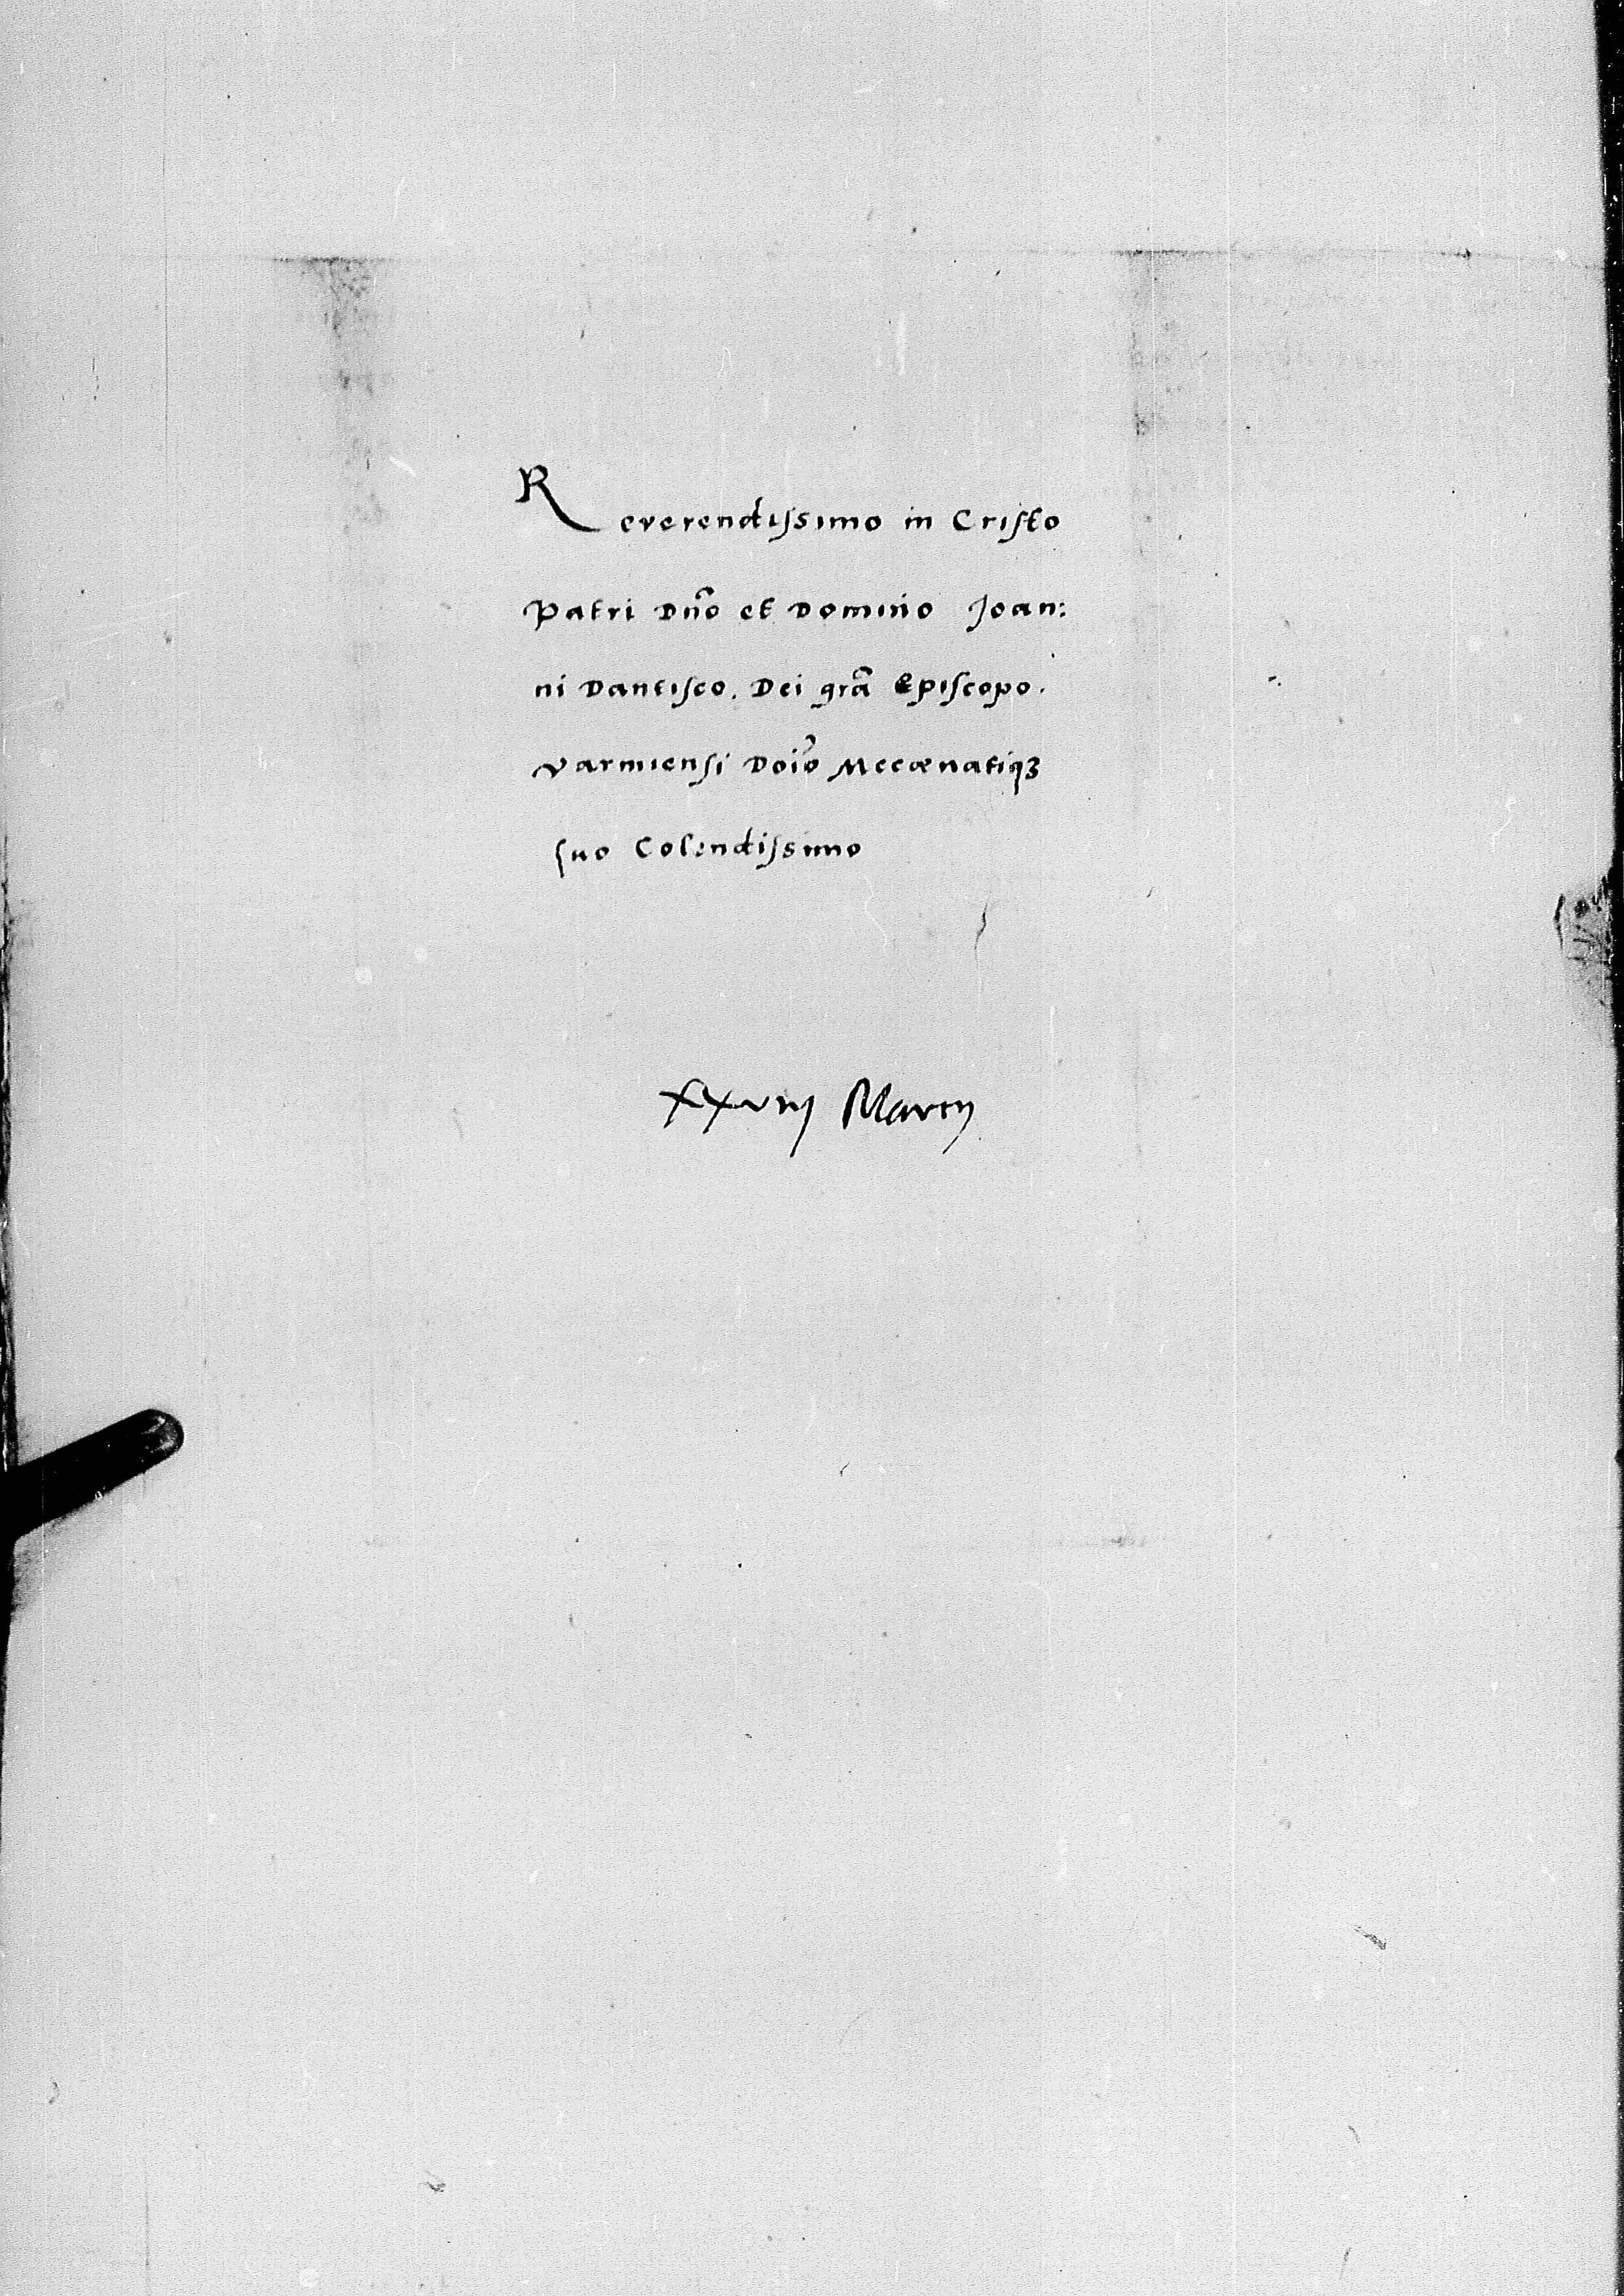 Reverendiſsimo in Criſto
Patri Dño et Domino Joan:
ni Dantiſco. Dei grã Epiſcopo.
varmienſi Doiõ Mecœnatiqꝫ
ſuo Colendiſsimo
xxviij Martij